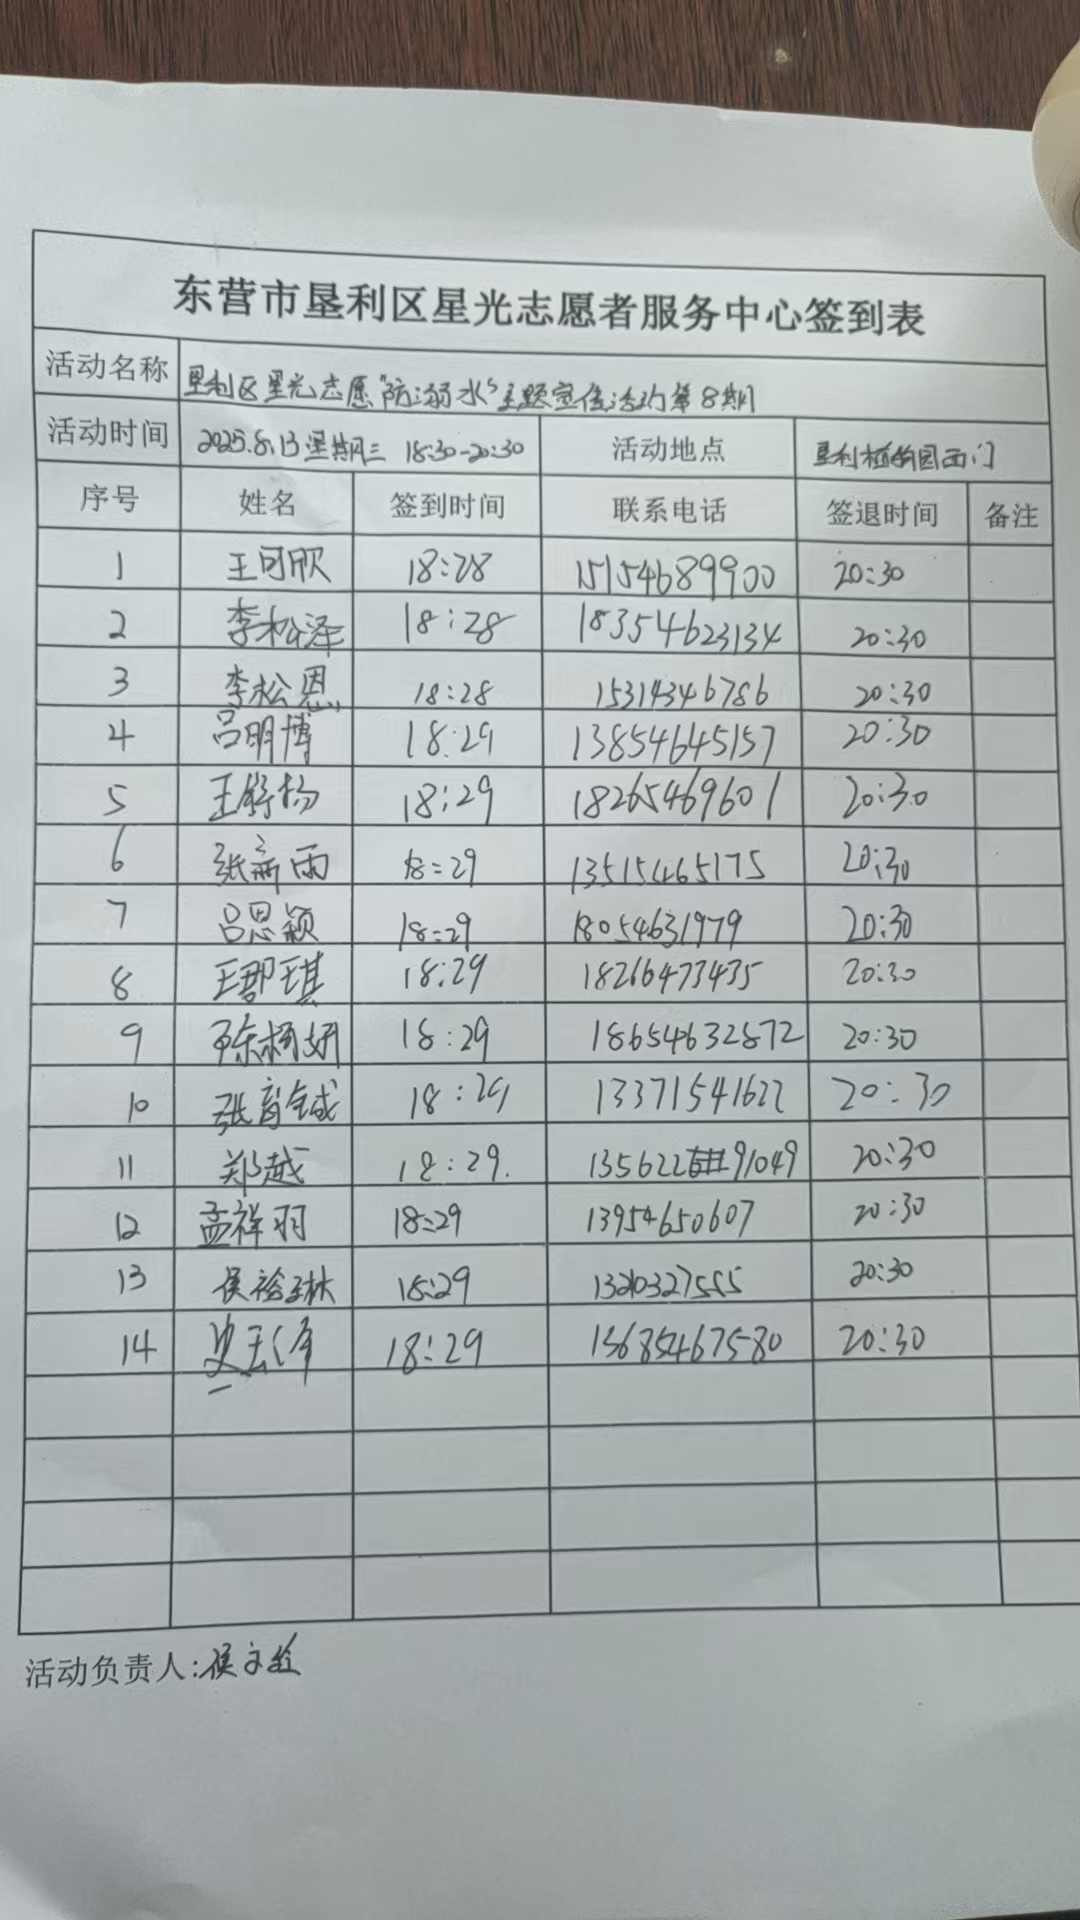 东营市垦利区星光志愿者服务中心签到表
活动名称 垦利区星光志愿"防溺水"主题宣传活动第8期
活动时间 2025.8.13 星期三 18:30-20:30 活动地点 垦利植物园西门
序号 姓名 签到时间 联系电话 签退时间 备注
1 王可欣 18:28 15154689900 20:30
2 李松泽 18:28 18354623134 20:30
3 李松恩 18:28 15314346786 20:30
4 吕明博 18:29 13854645157 20:30
5 王舒扬 18:29 18265469601 20:30
6 张新雨 18:29 13515465175 20:30
7 吕思颖 18:29 18054631979 20:30
8 王郡琪 18:29 18266473435 20:30
9 陈杨妍 18:29 18654632872 20:30
10 张育铖 18:29 13371541622 20:30
11 郑越 18:29. 135622 91049 20:30
12 孟祥羽 18:29 13954650607 20:30
13 侯裕琳 18:29 20:30
14 史玉泽 18:29 13685467580 20:30
活动负责人:侯文